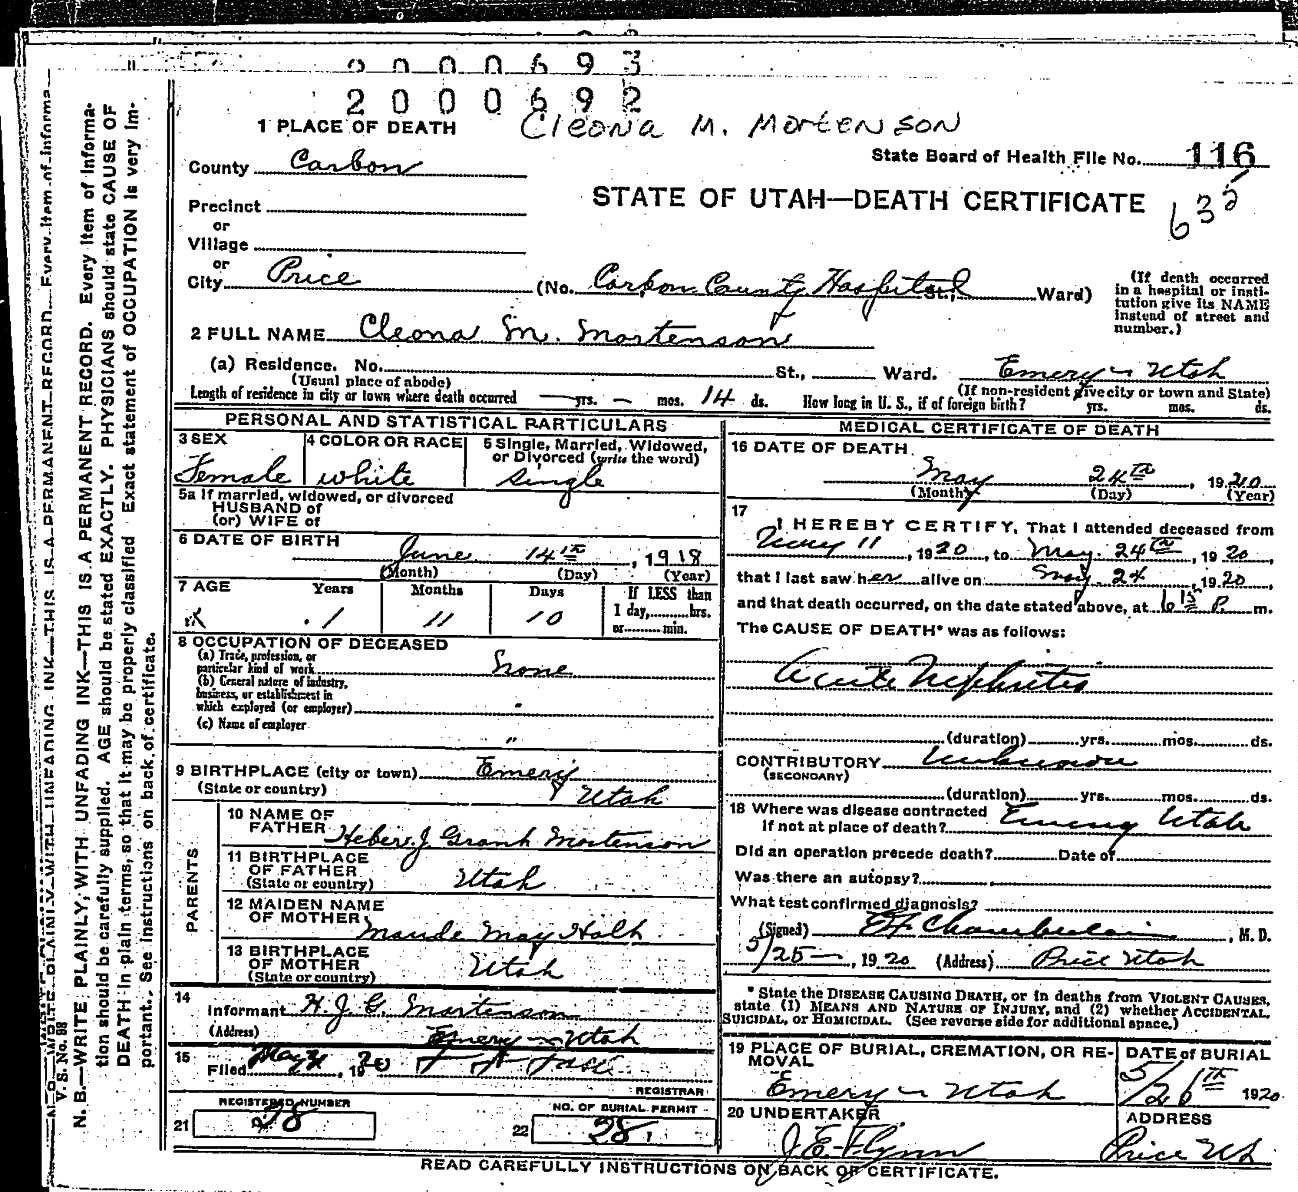 2000693
2000692
Cleona M. Mortenson
1 PLACE OF DEATH
State Board of Health File No. 116
County Carbon
STATE OF UTAH—DEATH CERTIFICATE
635
Precinct
or
Village
or
City Price (No. Carbon County Hospital St., Ward)
(If death occurred in a hospital or institution give its NAME instead of street and number.)
2 FULL NAME Cleona M. Mortenson
(a) Residence. No. St., Ward. Emery Utah
(Usual place of abode) (If non-resident give city or town and State)
Length of residence in city or town where death occurred — yrs. — mos. 14 ds. How long in U. S., if of foreign birth? yrs. mos. ds.
PERSONAL AND STATISTICAL PARTICULARS
3 SEX Female
4 COLOR OR RACE white
5 Single, Married, Widowed, or Divorced (write the word) single
5a If married, widowed, or divorced
HUSBAND of
(or) WIFE of
6 DATE OF BIRTH June 14th, 1918
(Month) (Day) (Year)
7 AGE Years Months Days If LESS than
1 11 10 1 day, hrs.
or min.
8 OCCUPATION OF DECEASED
(a) Trade, profession, or
particular kind of work None
(b) General nature of industry,
business, or establishment in
which employed (or employer) "
(c) Name of employer "
9 BIRTHPLACE (city or town) Emery
(State or country) Utah
PARENTS
10 NAME OF
FATHER Heber J Grant Mortenson
11 BIRTHPLACE
OF FATHER Utah
(State or country)
12 MAIDEN NAME
OF MOTHER Maude May
13 BIRTHPLACE
OF MOTHER Utah
(State or country)
14
Informant H. J. G. Mortenson
(Address) Emery Utah
15
Filed May, 1920
REGISTRAR
REGISTERED NUMBER
21 28
NO. OF BURIAL PERMIT
22 28
MEDICAL CERTIFICATE OF DEATH
16 DATE OF DEATH
May 24th, 1920
(Month) (Day) (Year)
17
I HEREBY CERTIFY, That I attended deceased from
May 11, 1920, to May 24th, 1920,
that I last saw her alive on May 24, 1920,
and that death occurred, on the date stated above, at 6 15 P. m.
The CAUSE OF DEATH* was as follows:
Acute Nephritis
(duration) yrs. mos. ds.
CONTRIBUTORY Unknown
(SECONDARY)
(duration) yrs. mos. ds.
18 Where was disease contracted
If not at place of death? Emery Utah
Did an operation precede death? Date of
Was there an autopsy?
What test confirmed diagnosis?
(Signed) Chamberlain, M. D.
5/25—, 1920 (Address) Price Utah
* State the DISEASE CAUSING DEATH, or in deaths from VIOLENT CAUSES,
state (1) MEANS AND NATURE OF INJURY, and (2) whether ACCIDENTAL,
SUICIDAL, or HOMICIDAL. (See reverse side for additional space.)
19 PLACE OF BURIAL, CREMATION, OR REMOVAL
Emery Utah
DATE of BURIAL
5/26th 1920
20 UNDERTAKER
J. E. Flynn
ADDRESS
Price Ut
READ CAREFULLY INSTRUCTIONS ON BACK OF CERTIFICATE.
V. S. No. 98
N. B.—WRITE PLAINLY, WITH UNFADING INK—THIS IS A PERMANENT RECORD. Every item of informa-
tion should be carefully supplied. AGE should be stated EXACTLY. PHYSICIANS should state CAUSE OF
DEATH in plain terms, so that it may be properly classified. Exact statement of OCCUPATION is very im-
portant. See instructions on back of certificate.